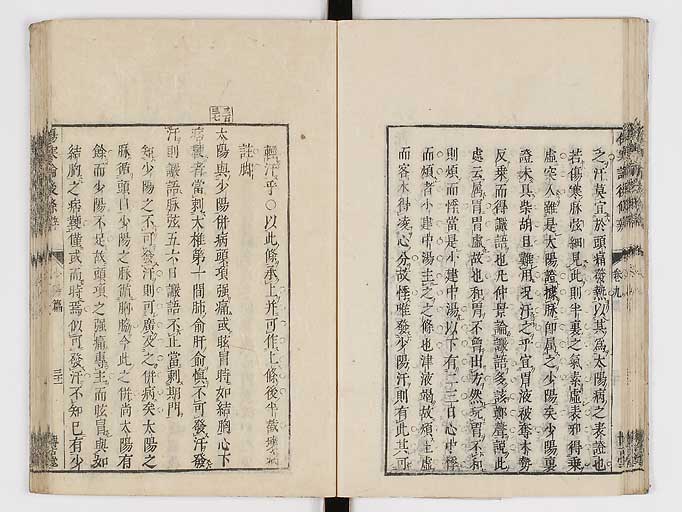 之汗莫宜於頭痛發熱以其為太陽病之表證也
若傷寒脉弦細見此則半裏之氣素虛表邪得乘
虛突入雖是太陽證據脉卽屬之少陽矣少陽裏
證未具柴胡且難用况汗之乎宜胃液被奪木勢
反乘而得讝語也凡仲景論讝語多該鄭聲說此
處云屬胃胃虛故也和胃不曾出方然玩胃不和
則煩而悸當是小建中湯以下有二三日心中悸
而煩者小建中湯主之之條也津液竭故煩土虛
而客水得凌心分故悸雖發少陽汗則有此其可
輕汗乎○以此條承上并可作上條後半截
註脚
太陽與少陽併病頭項強痛或眩冒時如結胸心下
痞鞕者當刺大椎第一間肺俞肝俞慎不可發汗發
汗則讝語脉弦五六日讝語不止當刺期門
知少陽之不可發汗則可廣及之併病矣太陽之
脉循頭項少陽之脉循胸脇今此之併尚太陽有
餘而少陽不足故頭項之強痛專主而眩冒與如
結胸之痞鞕僅或而時焉似可發汗不知已有少
卷九
篇